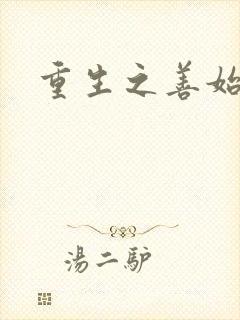 重生之善始
湯二驴